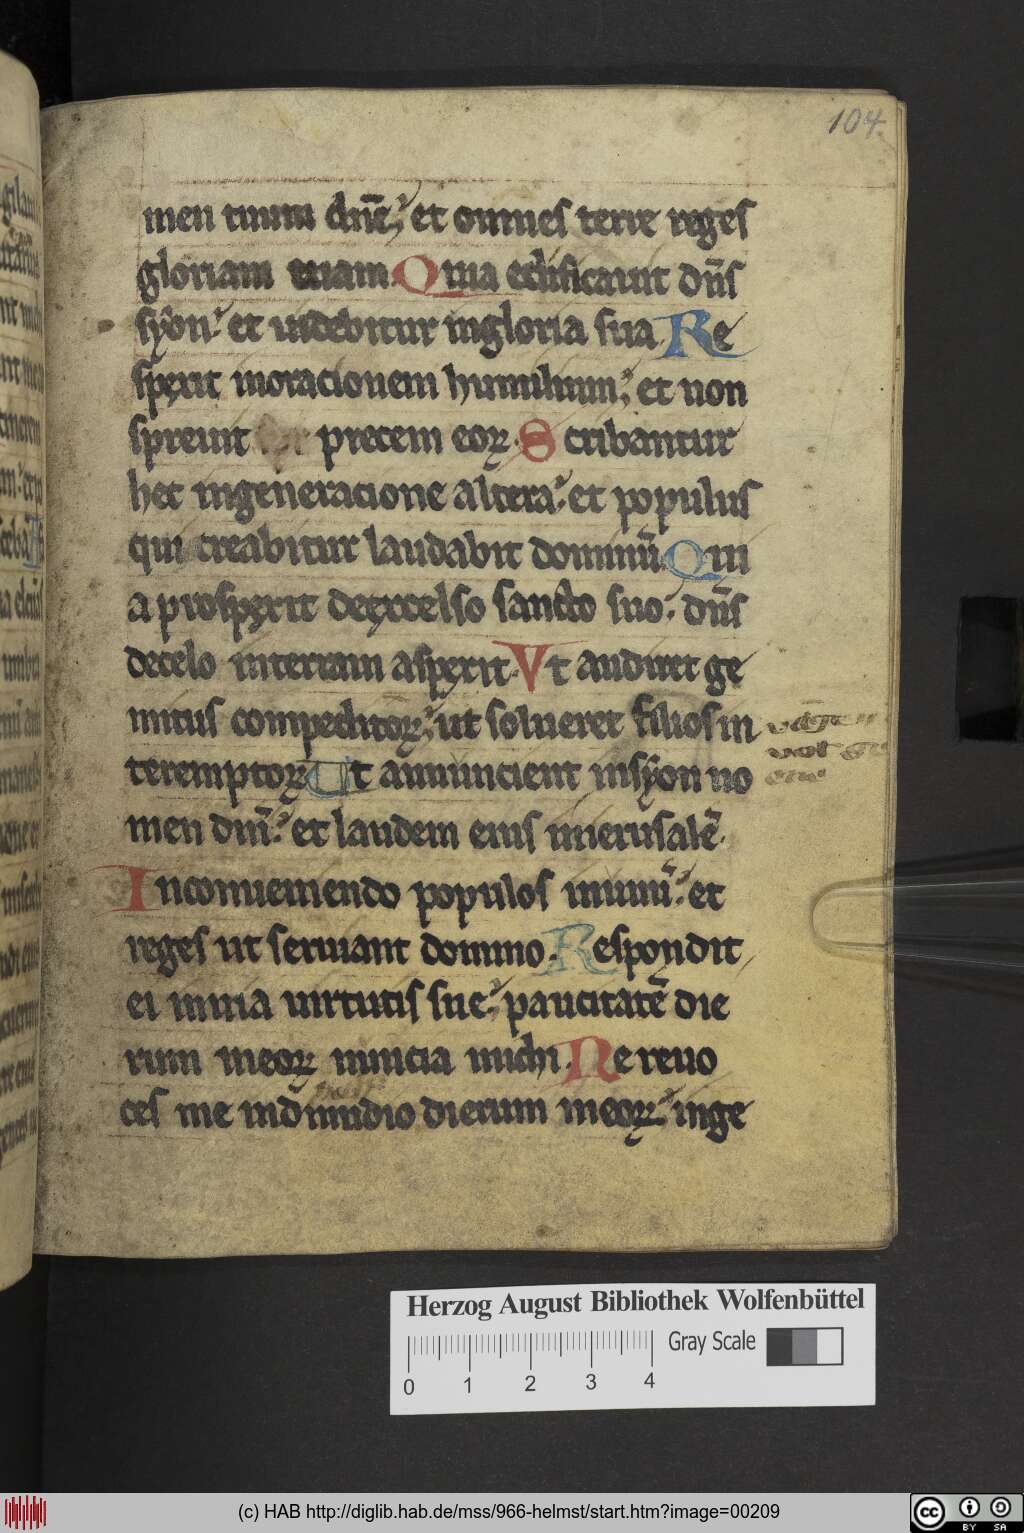 104.
men tuum dn̄e, et omnes terre reges
gloriam tuam. Quia edificauit dn̄s
syon. et uidebitur ingloria sua. Re
spexit inoracionem humilium, et non
spreuit precem eoꝝ. Scribantur
hec ingeneracione altera. et populus
qui creabitur laudabit dominū. Qui
a prospexit deexcelso sancto suo. dn̄s
decelo interram aspexit. Vt audiret ge
mitus compeditoꝝ, ut solueret filios in
teremptoꝝ. Ut annuncient insyon no
men dn̄i. et laudem eius inierusalē.
Inconueniendo populos inunū. et
reges ut seruiant domino. Respondit
ei inuia uirtutis sue, paucitatē die
rum meoꝝ nuncia michi. Ne reuo
ces me indimidio dierum meoꝝ. inge
Herzog August Bibliothek Wolfenbüttel
Gray Scale
0 1 2 3 4
(c) HAB http://diglib.hab.de/mss/966-helmst/start.htm?image=00209
cc BY SA